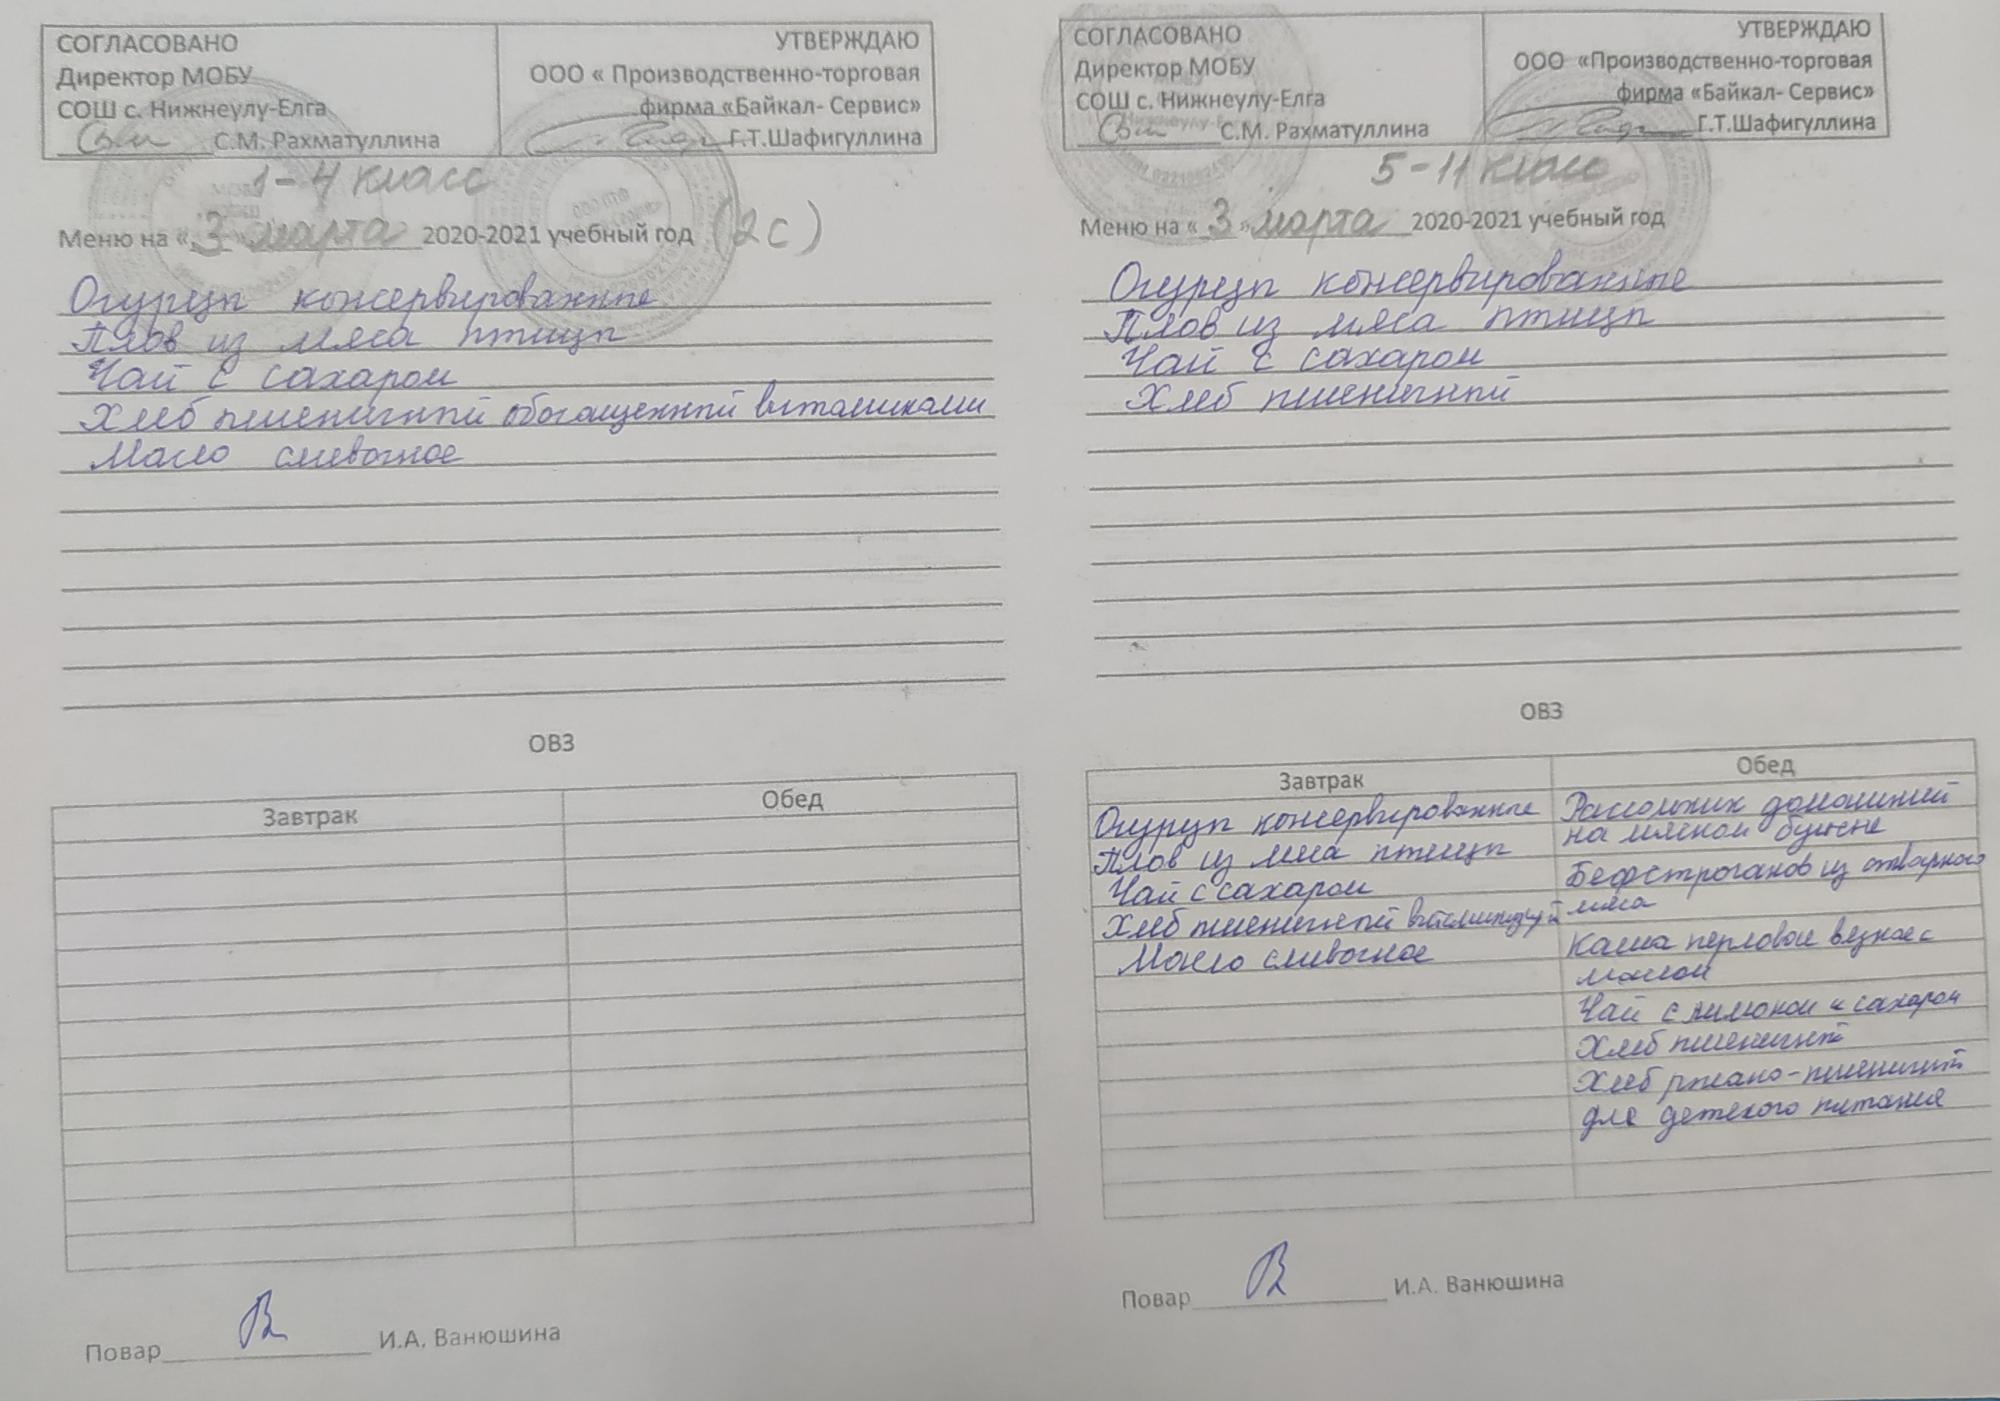 СОГЛАСОВАНО
Директор МОБУ
СОШ с. Нижнеулу-Елга
С.М. Рахматуллина
УТВЕРЖДАЮ
ООО « Производственно-торговая
фирма «Байкал- Сервис»
Г.Т.Шафигуллина
1-4 класс
Меню на « 3 » марта 2020-2021 учебный год (2 с)
Огурцы консервированные
Плов из мяса птицы
Чай с сахаром
Хлеб пшеничный обогащенный витаминами
Масло сливочное
ОВЗ
Завтрак Обед
Повар И.А. Ванюшина
СОГЛАСОВАНО
Директор МОБУ
СОШ с. Нижнеулу-Елга
С.М. Рахматуллина
УТВЕРЖДАЮ
ООО «Производственно-торговая
фирма «Байкал- Сервис»
Г.Т.Шафигуллина
5-11 класс
Меню на « 3 » марта 2020-2021 учебный год
Огурцы консервированные
Плов из мяса птицы
Чай с сахаром
Хлеб пшеничный
ОВЗ
Завтрак
Огурцы консервированные
Плов из мяса птицы
Чай с сахаром
Хлеб пшеничный
Масло сливочное
Обед
Рассольник домашний
на мясном бульоне
Бефстроганов из отварного
мяса
Каша перловая вязкая с
маслом
Чай с лимоном и сахаром
Хлеб пшеничный
Хлеб ржано-пшеничный
для детского питания
Повар И.А. Ванюшина